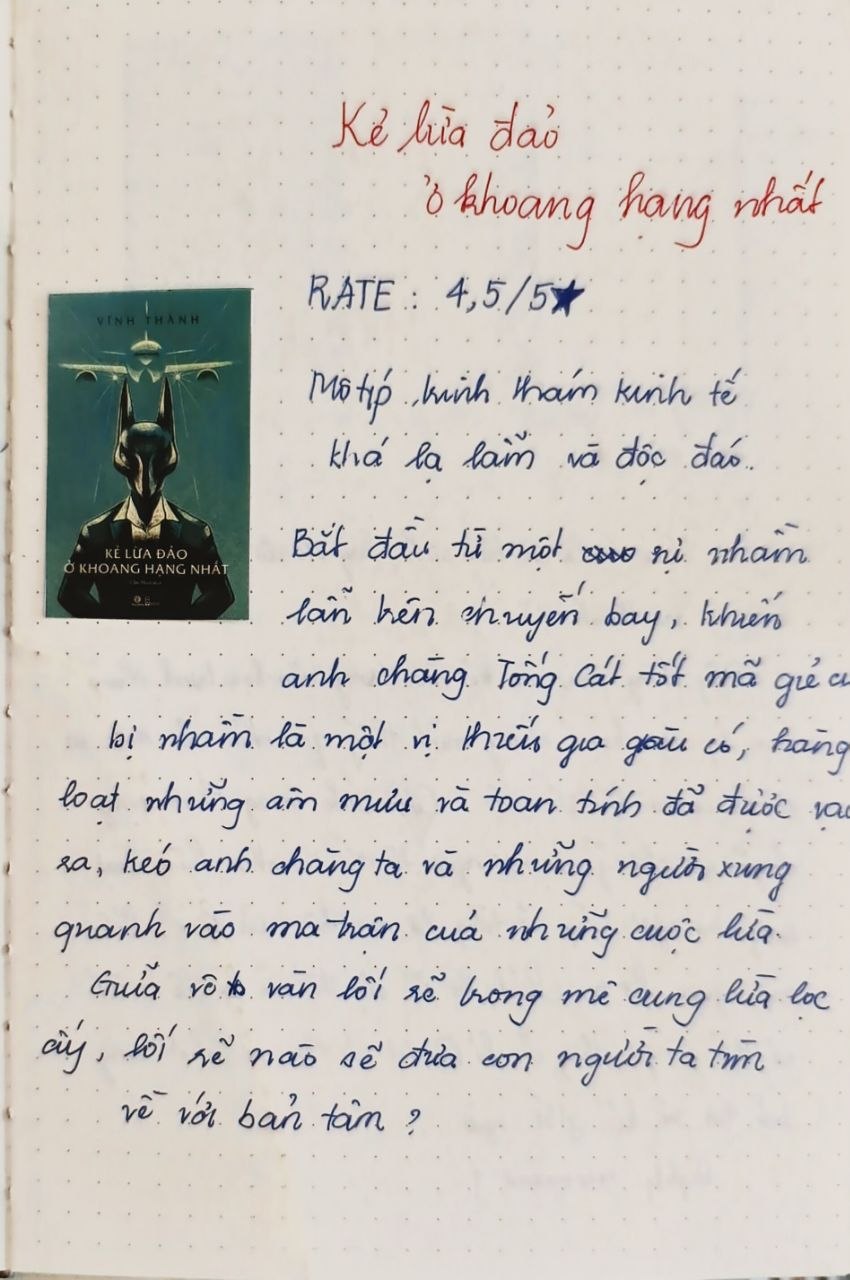 Kẻ lừa đảo
ở khoang hạng nhất
RATE : 4,5/5★
VĨNH THÀNH
KẺ LỪA ĐẢO
Ở KHOANG HẠNG NHẤT
Mô típ kinh thám kinh tế
khá lạ lẫm và độc đáo.
Bắt đầu từ một vị nhầm
lẫn trên chuyến bay, khiến
anh chàng Tống Cát tốt mã giẻ
bị nhầm là một vị thiếu gia giàu có, hàng
loạt những âm mưu và toan tính đã được
ra, kéo anh chàng ta và những người xung
quanh vào ma trận của những cuộc lừa.
Giữa vô vàn lối rẽ trong mê cung lừa lọc
ấy, lối rẽ nào sẽ đưa con người ta tìm
về với bản tâm ?